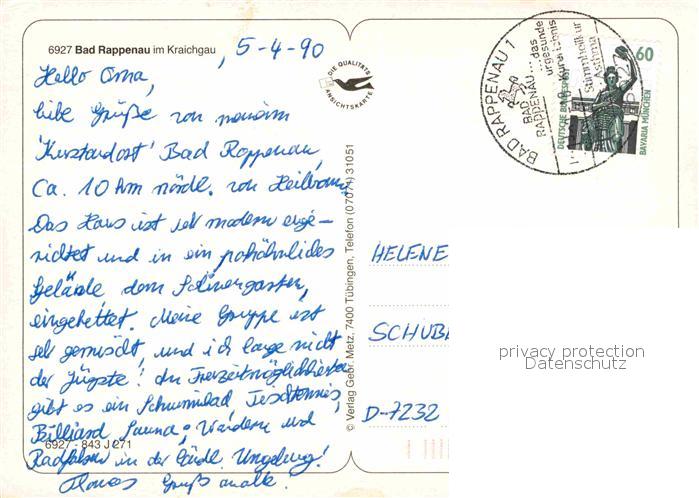 6927 Bad Rappenau im Kraichgau
, 5-4-90
Hallo Oma,
liebe Grüße von meinem
'Kurstandort' Bad Rappenau,
Ca. 10 km nördl. von Heilbronn.
Das Haus ist sehr modern einge-
richtet und in ein parkähnliches
Gelände dem Salinengarten,
eingebettet. Meine Gruppe ist
sehr gemischt, und ich lange nicht
der Jügste! An Freizeitmöglichkeiten
gibt es ein Schwimmbad, Tischtennis,
Billiard Sauna; Wandern und
Radfahren in der ländl. Umgebung!
Gruß
6927 - 843 J 271
DIE QUALITÄTS
ANSICHTSKARTE
© Verlag Gebr. Metz, 7400 Tübingen, Telefon (07071) 31051
BAD RAPPENAU 1
BAD
RAPPENAU... das
urgesunde
Asthma
60
DEUTSCHE BUNDESPOST
BAVARIA MÜNCHEN
HELENE
SCHUB
D-7232
privacy protection
Datenschutz